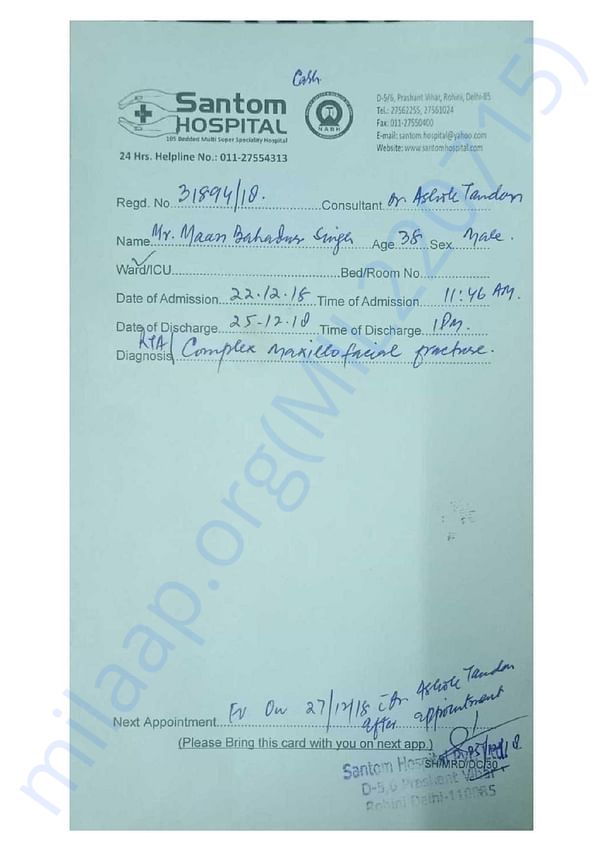 Cash
Santom
HOSPITAL
105 Bedded Multi Super Speciality Hospital
24 Hrs. Helpline No.: 011-27554313
NABH
D-5/6, Prashant Vihar, Rohini, Delhi-85
Tel.: 27562255, 27561024
Fax: 011-27550400
E-mail: santom.hospital@yahoo.com
Website: www.santomhospital.com
Regd. No. 31894/18. Consultant Dr Ashok Tandon
Name Mr. Maan Bahadur Singh Age 38 Sex Male.
Ward/ICU Bed/Room No.
Date of Admission 22.12.18 Time of Admission 11:46 AM.
Date of Discharge 25-12-18 Time of Discharge 1PM.
Diagnosis RTA/ Complex maxillofacial fracture.
Next Appointment On 27/12/18 Dr Ashok Tandon
after appointment
(Please Bring this card with you on next app.)
SH/MRD/DC/30
Santom Hospital
D-5,6 Prashant Vihar
Rohini Delhi-110085
milaap.org(MIL220715)